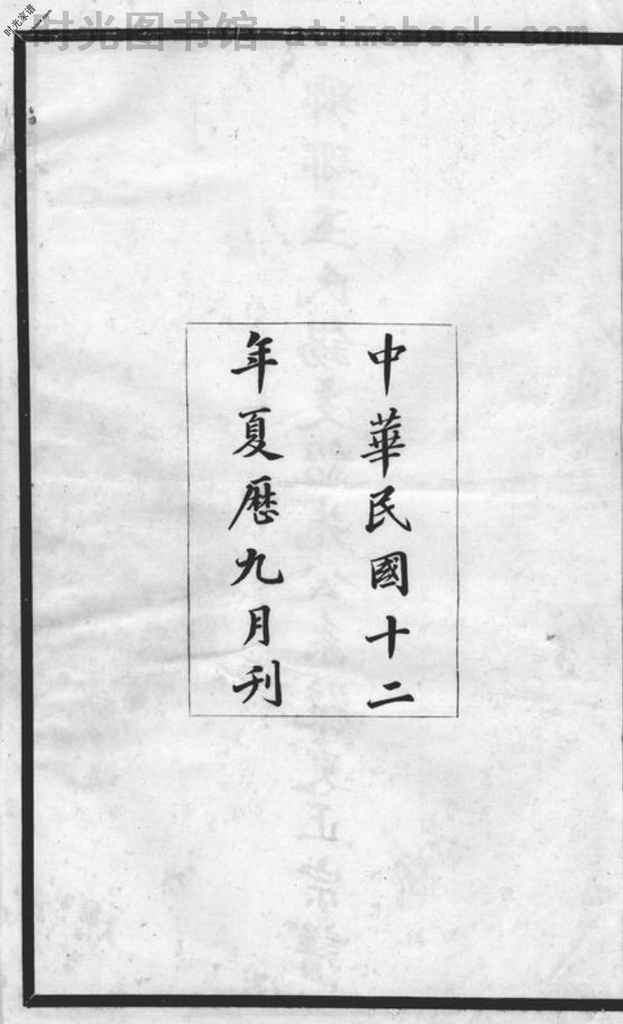 时光家谱
时光图书馆 atimebook.com
中華民國十二
年夏歷九月刊